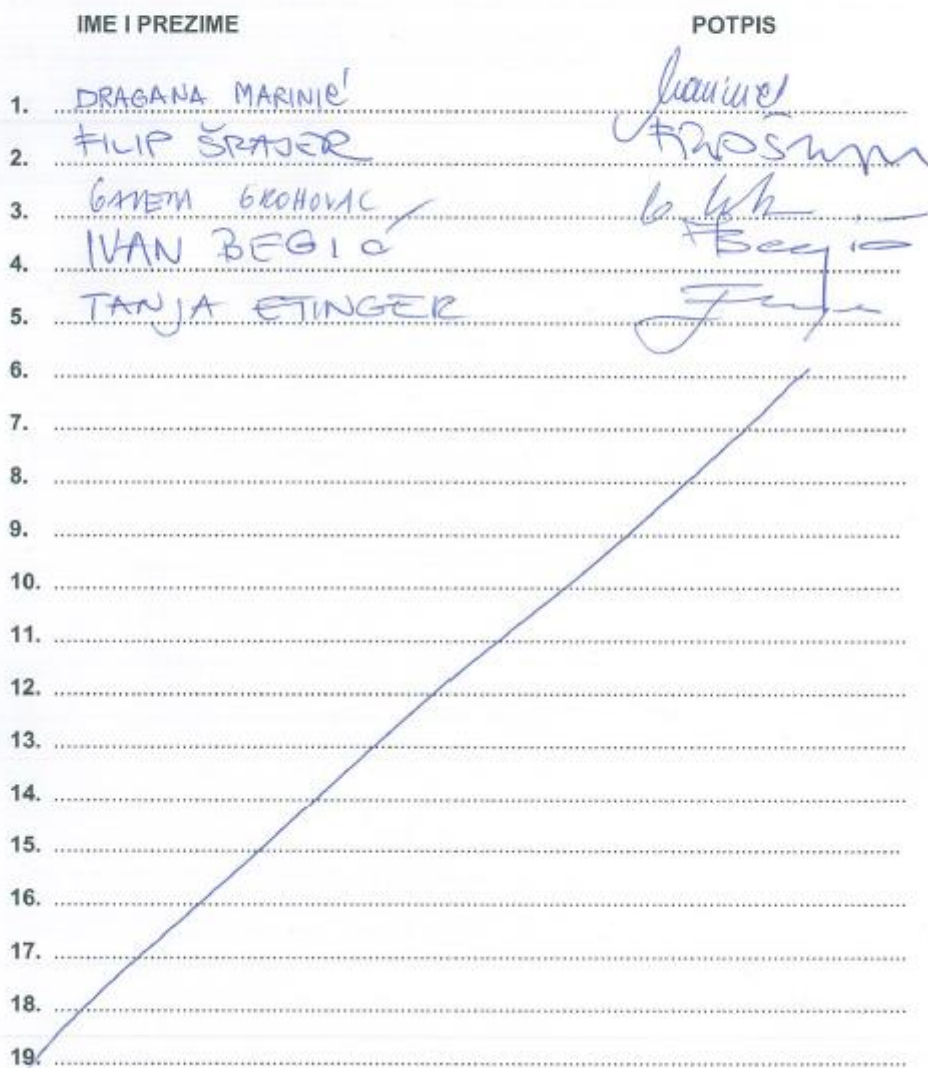 IME I PREZIME POTPIS
1. DRAGANA MARINIĆ
2. FILIP ŠRAJER
3. GROHOVAC
4. IVAN BEGIĆ Begić
5. TANJA ETINGER
6.
7.
8.
9.
10.
11.
12.
13.
14.
15.
16.
17.
18.
19.